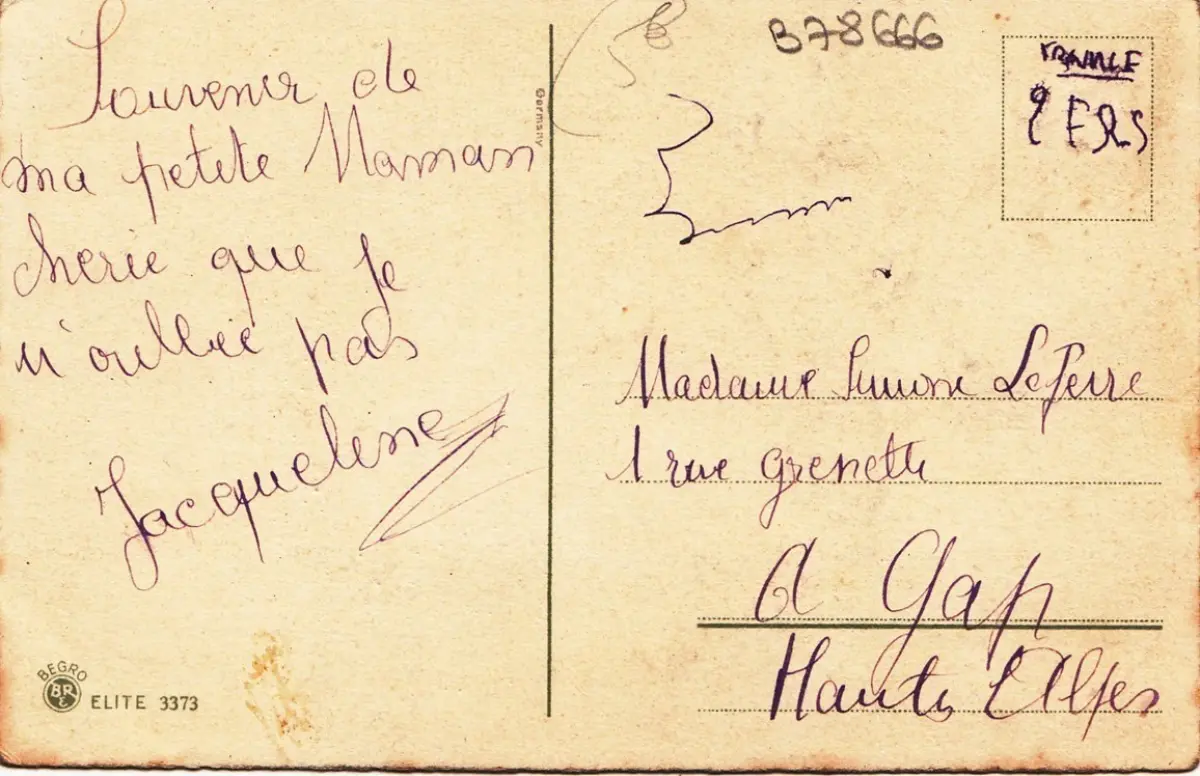 Souvenir de
ma petite Maman
cherie que je
n'oublie pas
Jacqueline
BEGRO
BR
ELITE 3373
Germany
B78666
FRANCE
2 FRS
Madame Simone LeFerre
1 rue grenette
A Gap
Hautes Alpes